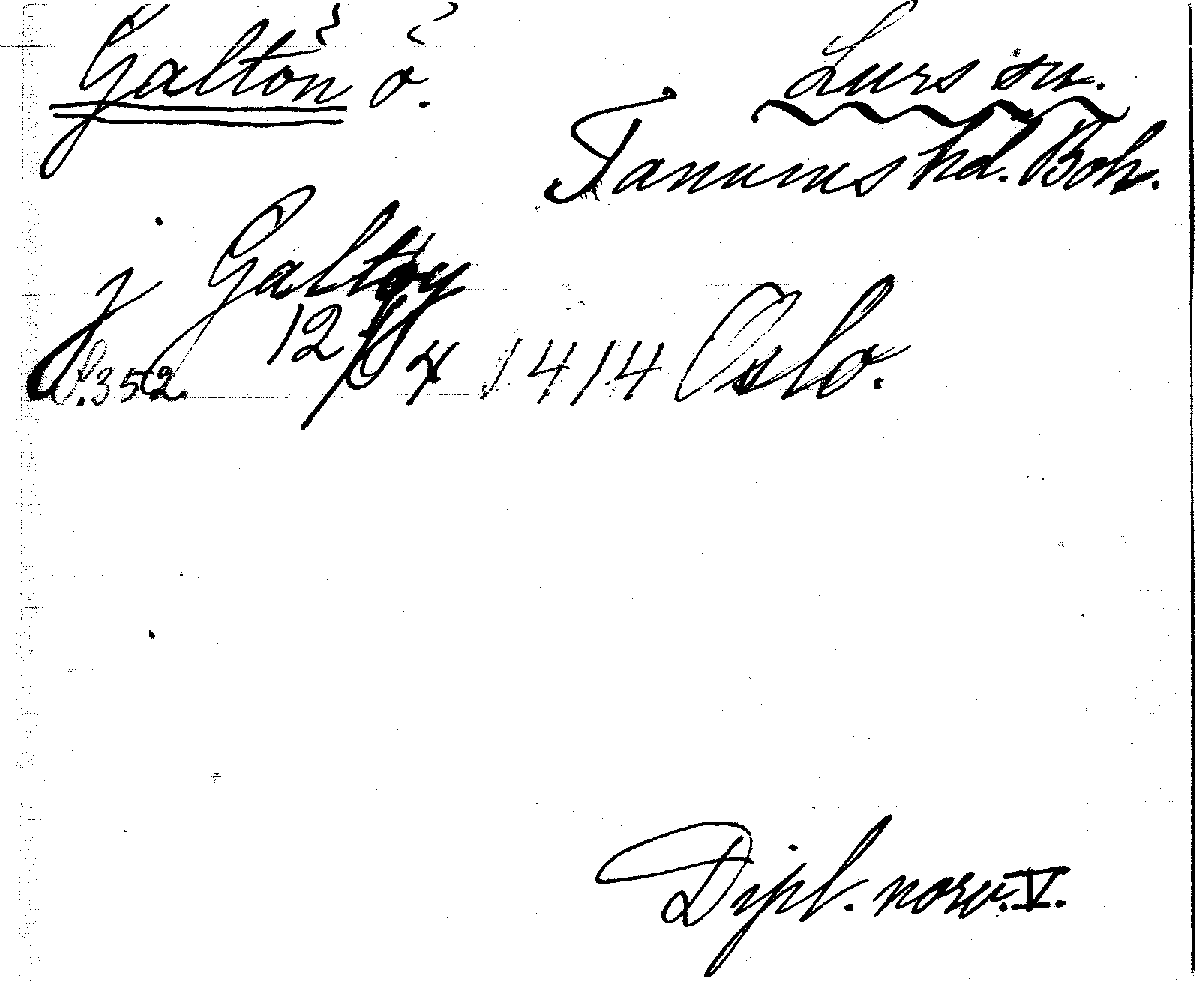 Galtön ö. Lurs sn.
Tanums hd. Boh.
j Galtøy
S. 352. 12/4 1414 Oslo.
Dipl. norv. V.